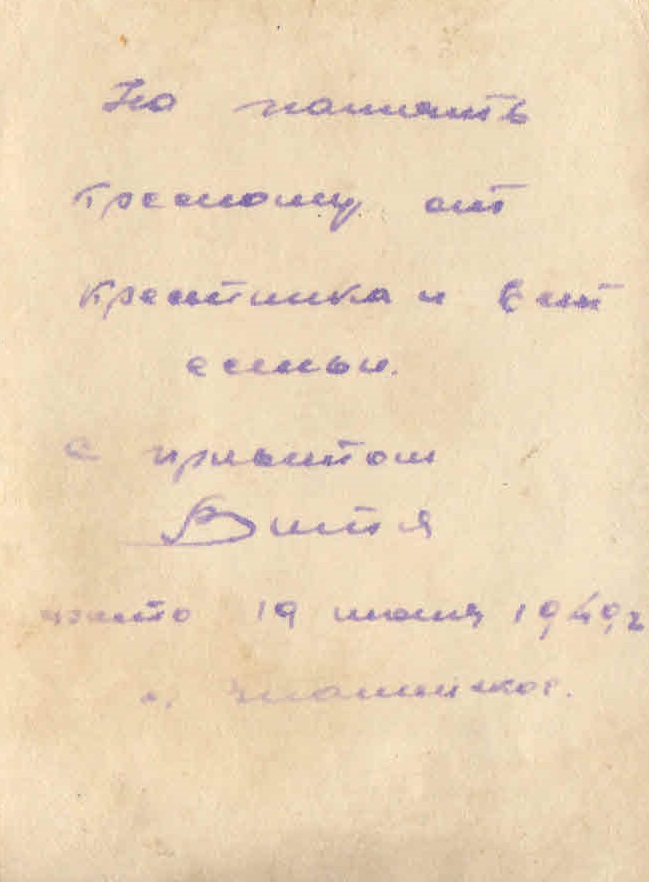 На память
Кресному от
Крестника и всей
семьи.
с приветом
Витя
фото 19 июня 1949 г
с.